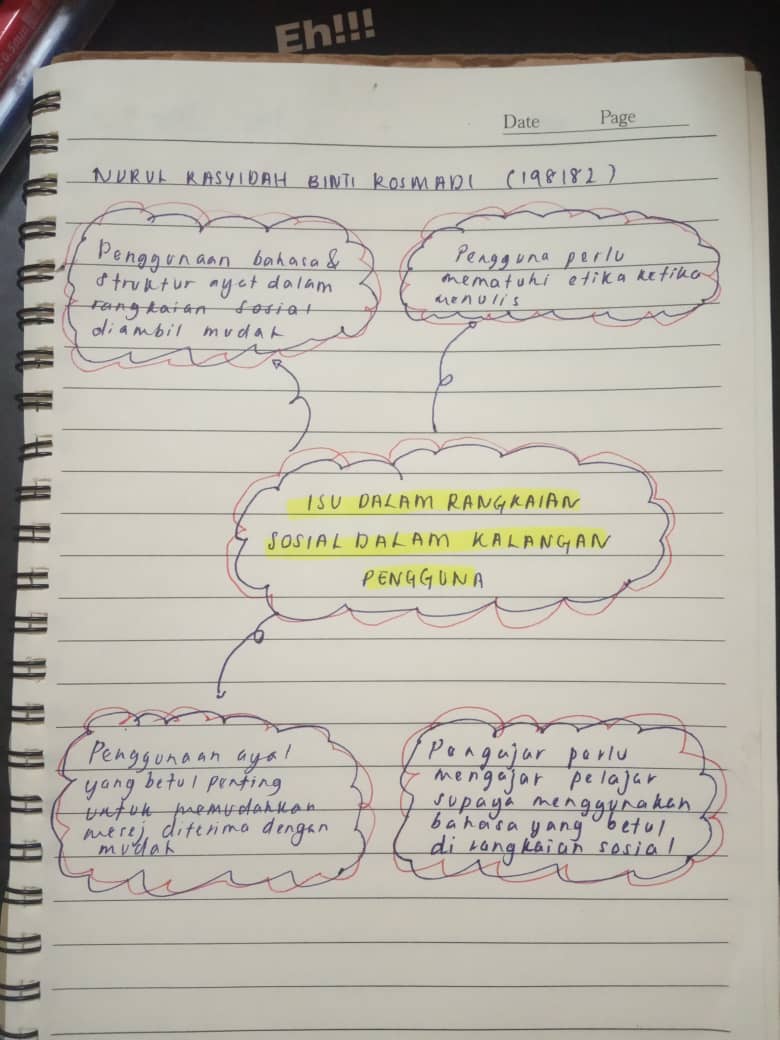 Eh!!!
Date Page
NURUL RASYIDAH BINTI ROSMADI (198182)
Penggunaan bahasa &
struktur ayat dalam
rangkaian sosial
diambil mudah
Pengguna perlu
mematuhi etika ketika
menulis
ISU DALAM RANGKAIAN
SOSIAL DALAM KALANGAN
PENGGUNA
Penggunaan ayat
yang betul penting
untuk memudahkan
mesej diterima dengan
mudah
Pengajar perlu
mengajar pelajar
supaya menggunakan
bahasa yang betul
di rangkaian sosial